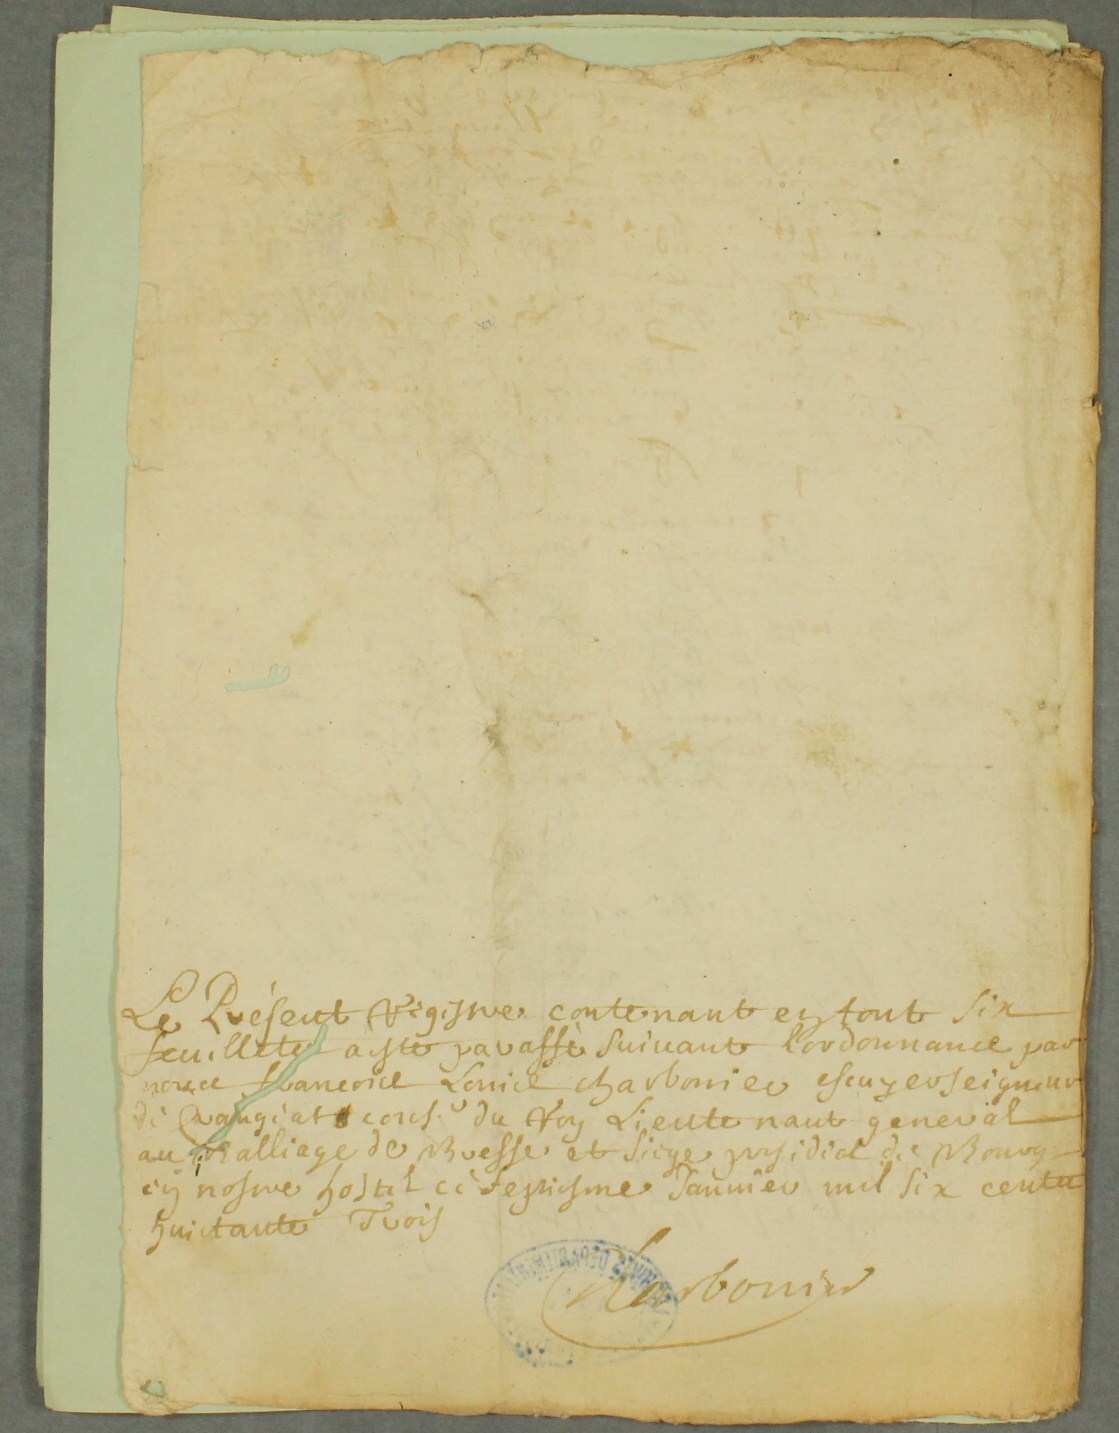 Le Présent Régistre contenant en tout Six
feuillets a esté paraffé Suivant l'ordonnance par
nous francois Louis charbonier escuyer seigneur
de Crangeat cons.r du Roy Lieutenant general
au Balliage de Bresse et Siege presidial de Bourg
en nostre hostel ce septiesme Janvier mil Six cents
huictante Trois
Charbonier
ARCHIVES DEPARTEMENTALES